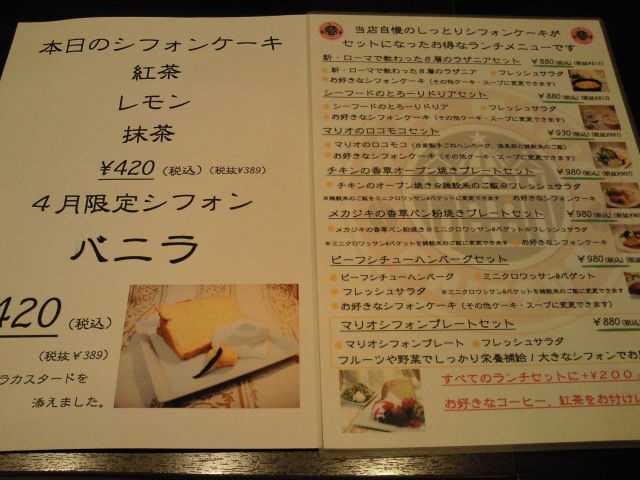 本日のシフォンケーキ
紅茶
レモン
抹茶
¥420 (税込) (税抜¥389)
4月限定シフォン
バニラ
420 (税込)
(税抜¥389)
ラカスタードを
添えました。
当店自慢のしっとりシフォンケーキが
セットになったお得なランチメニューです
新・ローマで教わった8層のラザニアセット ¥880(税込)
新・ローマで教わった8層のラザニア フレッシュサラダ
お好きなシフォンケーキ(その他ケーキ・スープに変更できます)
シーフードのとろーりドリアセット ¥880(税込)
シーフードのとろーりドリア フレッシュサラダ
お好きなシフォンケーキ(その他ケーキ・スープに変更できます)
マリオのロコモコセット ¥930(税込)
マリオのロコモコ(自家製手ごねハンバーグ、温泉卵と雑穀米のご飯)
お好きなシフォンケーキ(その他ケーキ・スープに変更できます)
チキンの香草オーブン焼きプレートセット ¥980(税込)
チキンのオーブン焼き&雑穀米のご飯&フレッシュサラダ
※雑穀米のご飯をミニクロワッサン&バゲットに変更できます お好きなシフォンケーキ
メカジキの香草パン粉焼きプレートセット ¥980(税込)
メカジキの香草パン粉焼き&ミニクロワッサン&バゲット&フレッシュサラダ
※ミニクロワッサン&バゲットを雑穀米のご飯に変更できます お好きなシフォンケーキ
ビーフシチューハンバーグセット ¥980(税込)
ビーフシチューハンバーグ ミニクロワッサン&バゲット
フレッシュサラダ ※ミニクロワッサン&バゲットを雑穀米のご飯に変更できます
お好きなシフォンケーキ(その他ケーキ・スープに変更できます)
マリオシフォンプレートセット ¥880(税込)
マリオシフォンプレート フレッシュサラダ
フルーツや野菜でしっかり栄養補給!大きなシフォンでお
すべてのランチセットに+¥200
お好きなコーヒー、紅茶をお付けし